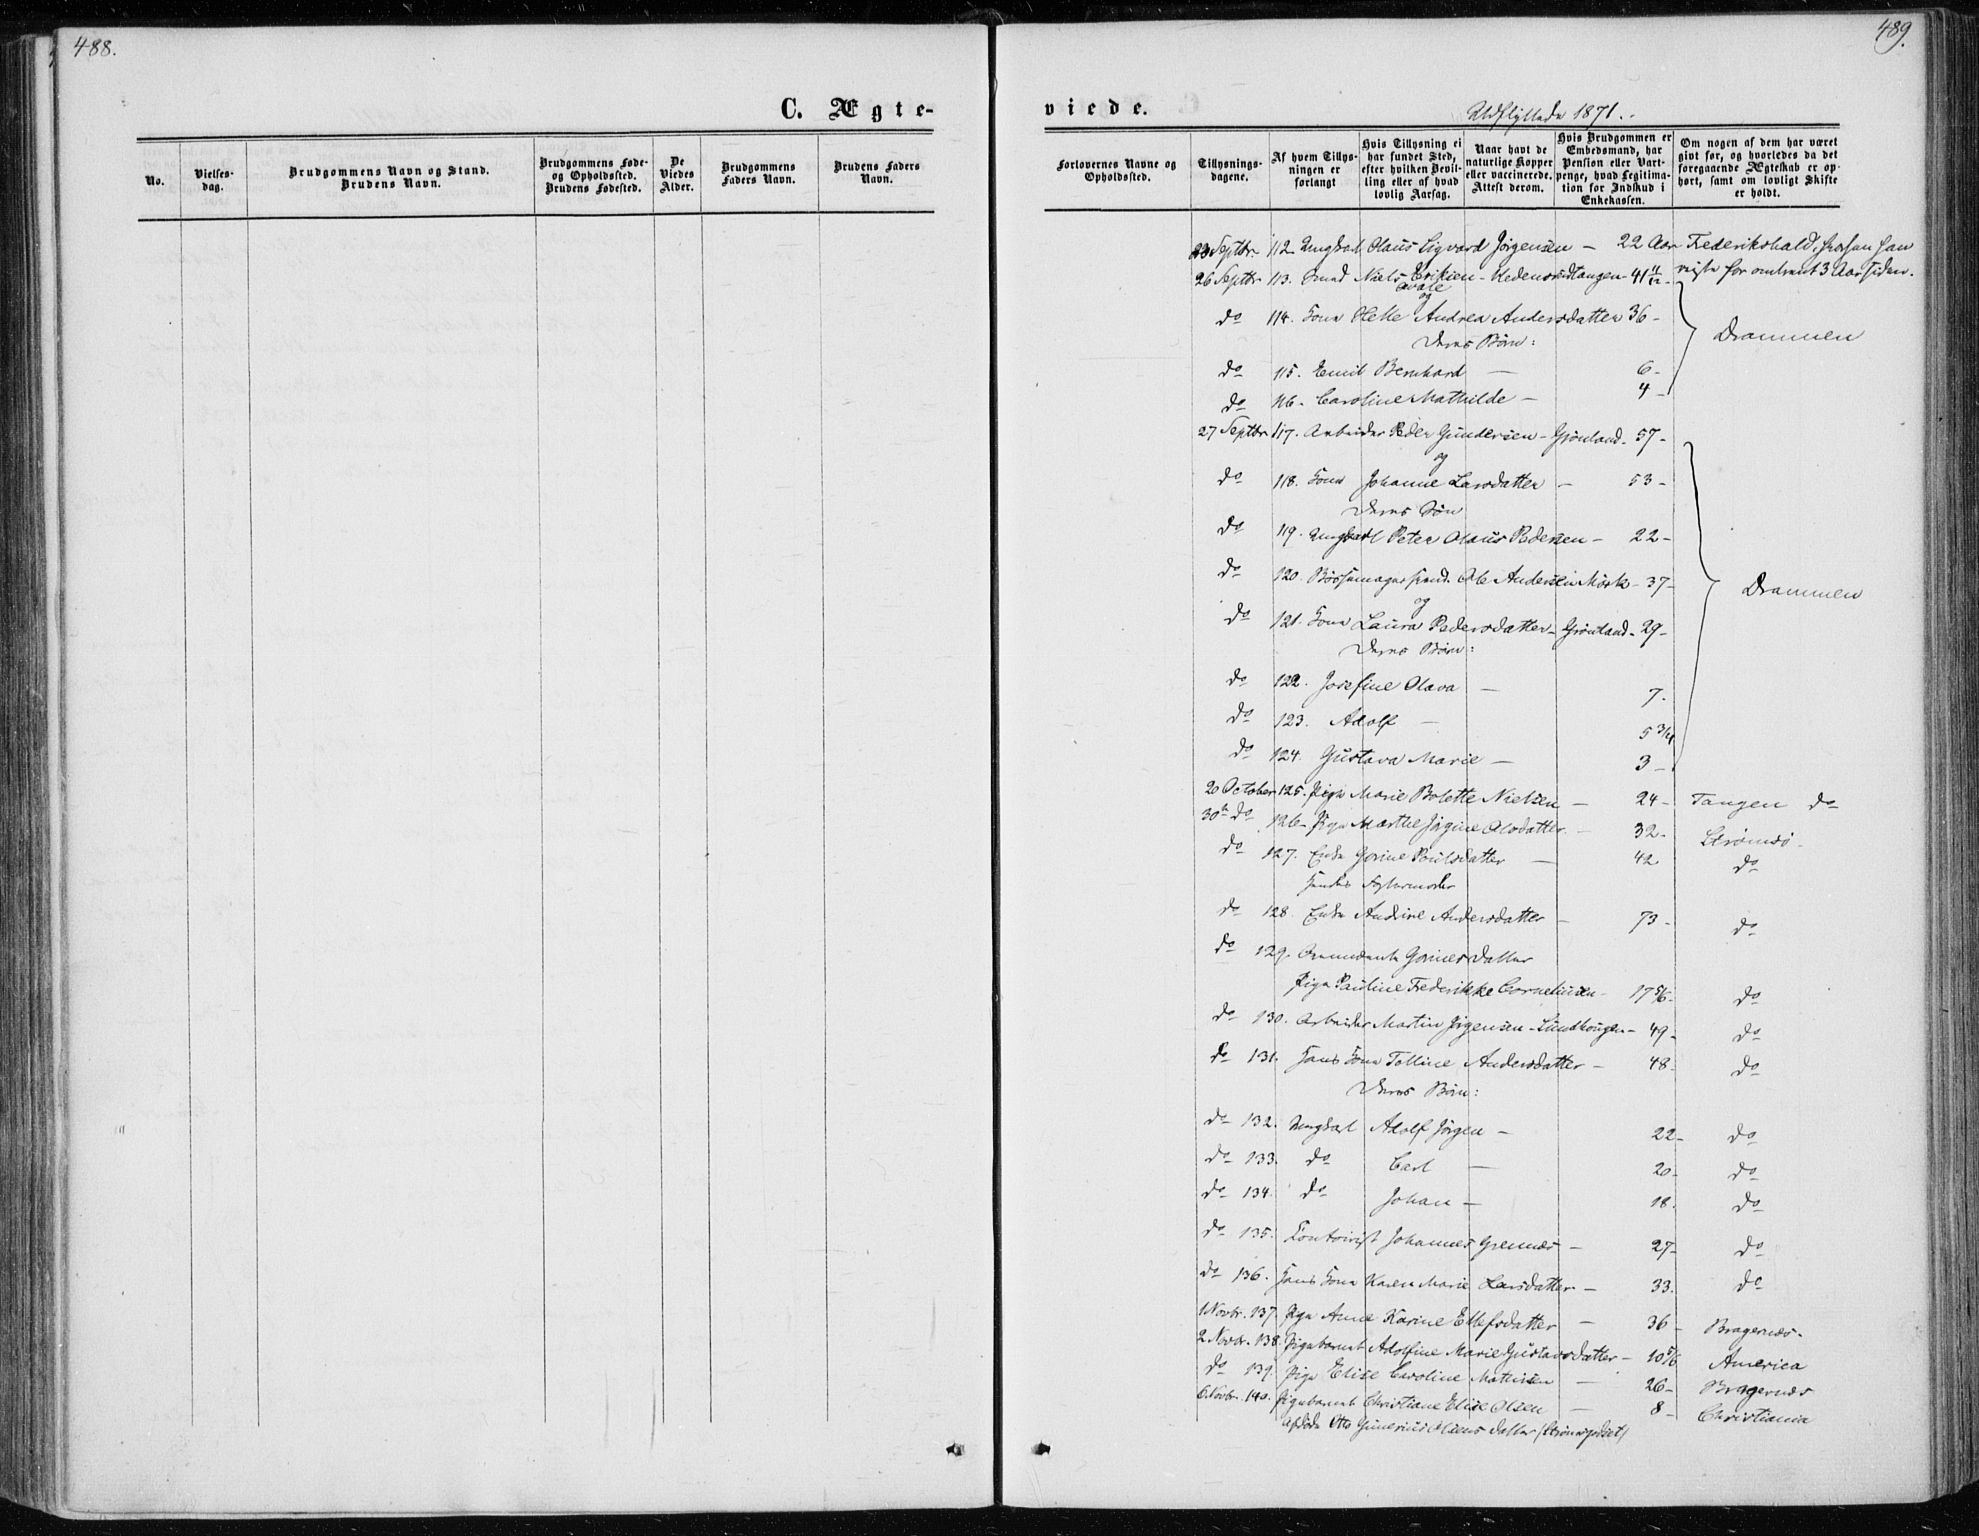 488.
C. Ægte-
No.
Vielses-
dag.
Brudgommens Navn og Stand.
Brudens Navn.
Brudgommens Føde-
og Opholdssted.
Brudens Fødested.
De
Viedes
Alder.
Brudgommens
Faders Navn.
Brudens Faders
Navn.
489.
viede.
Udflyttede 1871.
Forlovernes Navne og
Opholdssted.
Tillysnings-
dagene.
Af hvem Tillys-
ningen er
forlangt
Hvis Tillysning ei
har fundet Sted,
efter hvilken Bevil-
ling eller af hvad
lovlig Aarsag.
Naar havt de
naturlige Kopper
eller vaccinerede.
Attest derom.
Hvis Brudgommen er
Embedsmand, har
Pension eller Vart-
penge, hvad Legitima-
tion for Indskud i
Enkekassen.
Om nogen af dem har været
givt før, og hvorledes da det
foregaaende Ægteskab er op-
hørt, samt om lovligt Skifte
er holdt.
23 Septbr 112 Ungkarl Olaus Sigvard Jørgensen - 22 Aar Frederikshald, hvorhen han
26 Septbr 113. Smed Niels Eriksen - 41 11/12 - reiste for omtrent 3 Aar siden.
og
do 114. Kone Helle Andrea Andersdatter 36 - Drammen
Deres Børn:
do 115. Emil Bernhard - 6 -
do 116. Caroline Mathilde - 4 -
27 Septbr 117. Arbeider Peder Gundersen - Grønland - 57 -
og
do 118. Kone Johanne Larsdatter - 53 -
Deres Søn
do 119. Ungkarl Peter Olaus Pedersen - 22 -
do 120. Bøssemagersvend Ole Andersen Mørk - 37 - Drammen
og
do 121. Kone Laura Pedersdatter - Grønland - 29 -
Deres Børn:
do 122. Josefine Olava - 7.
do 123. Adolf - 5 3/4
do 124. Gustava Marie - 3 -
20 October 125. Pige Marie Bolette Nielsen - 24 - Tangen do
30te do 126 - Pige Marthe Jørgine Olsdatter - 32 - Strømsø -
do 127. Enke Gorine Poulsdatter - 42 do
Hendes
do 128. Enke Andrine Andersdatter - 73 - do
do 129. Gorines Datter
Pige Pauline Frederikke Corneliusen - 17 5/6 - do
do 130. Arbeider Martin Jørgensen - Lundhougen - 49 - do
do 131. Hans Kone Telline Andersdatter - 48 - do
Deres Børn:
do 132. Ungkarl Adolf Jørgen - 22 - do
do 133. do Carl - 20 - do
do 134. do Johan - 18. do
do 135. Kontorist Johannes Grennes - 27 - do
do 136. Hans Kone Karen Marie Larsdatter - 33. do
1 Novbr. 137. Pige Anne Karine Ellefsdatter - 36 - Bragernæs -
2 Novbr. 138. Pigebarnet Adolfine Marie Gustavsdatter - 10 5/6 America
do 139. Pige Elise Caroline Mathisen - 26 - Bragernæs
6 Novbr. 140. Pigebarnet Christiane Elise Olsen - 8 - Christiania
Afdøde Otto Gunerius Olsens Datter (Strømsgodset)